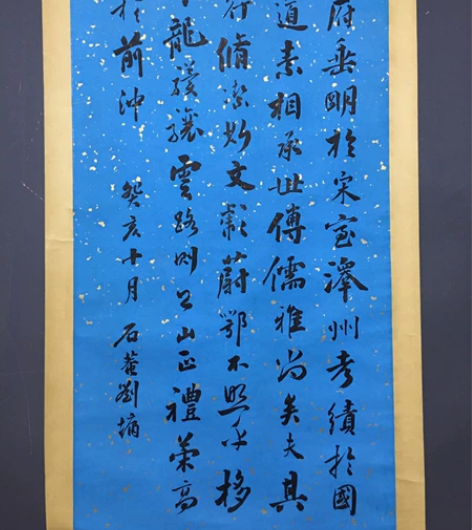 府垂明於宋室澤州考績於國
道素相承世傳儒雅尚矣夫其
行脩潔斯文彪蔚鄂不照乎移
龍驥驤雲路則公山正禮策高
於前沖 癸亥十月 石菴劉墉